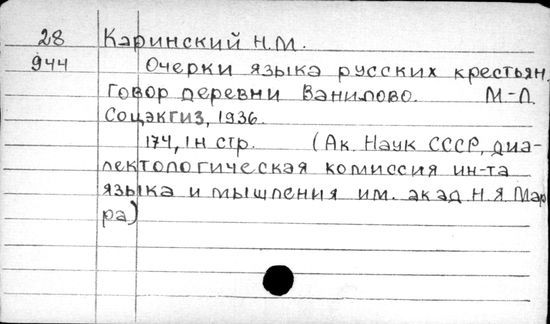 28 Каринский Н.М.
944 Очерки языка русских крестьян.
Говор деревни Ванилово. М-Л.
Соцэкгиз, 1936.
174, 1 н стр. (Ак. Наук СССР, диа-
лектологическая комиссия ин-та
языка и мышления им. акад Н.Я Мар
ра)